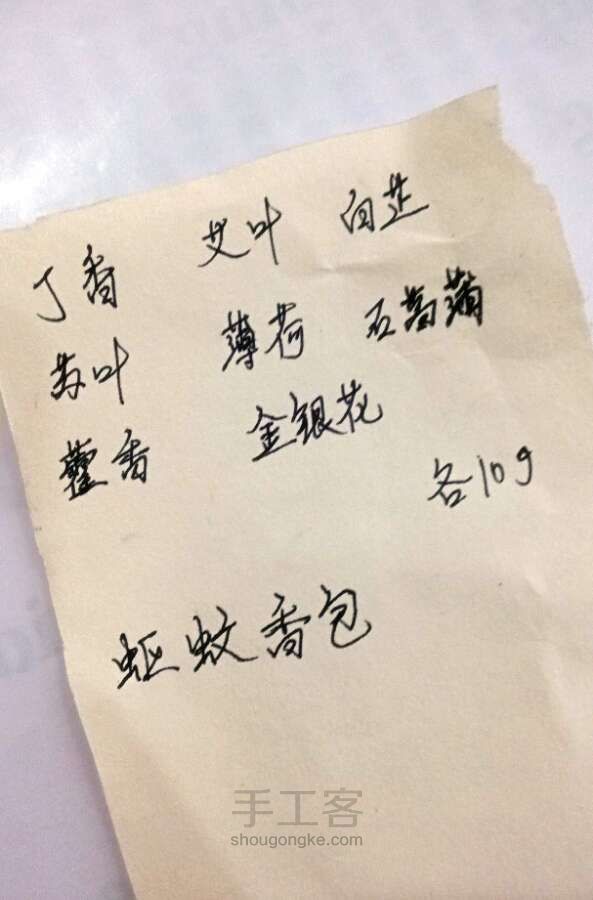 丁香 艾叶 白芷
苏叶 薄荷 石菖蒲
藿香 金银花
各10g
蚯蚊香包
手工客
shougongke.com